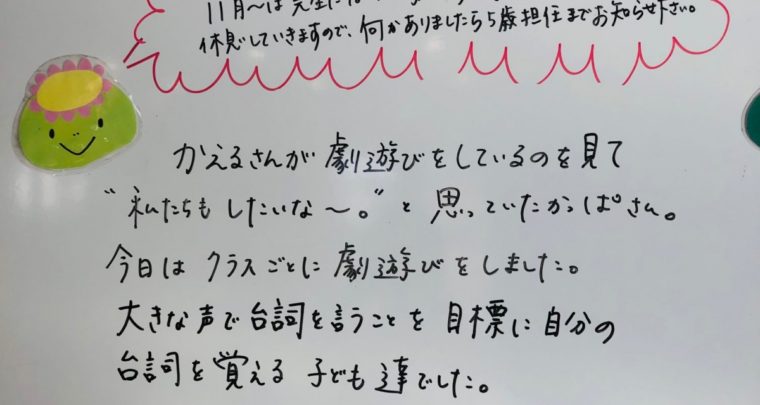 11月〜は先生に
休憩していきますので、何かありましたら5歳担任までお知らせ下さい。
かえるさんが劇遊びをしているのを見て
"私たちもしたいな〜。"と思っていたかっぱさん。
今日はクラスごとに劇遊びをしました。
大きな声で台詞を言うことを目標に自分の
台詞を覚える子ども達でした。